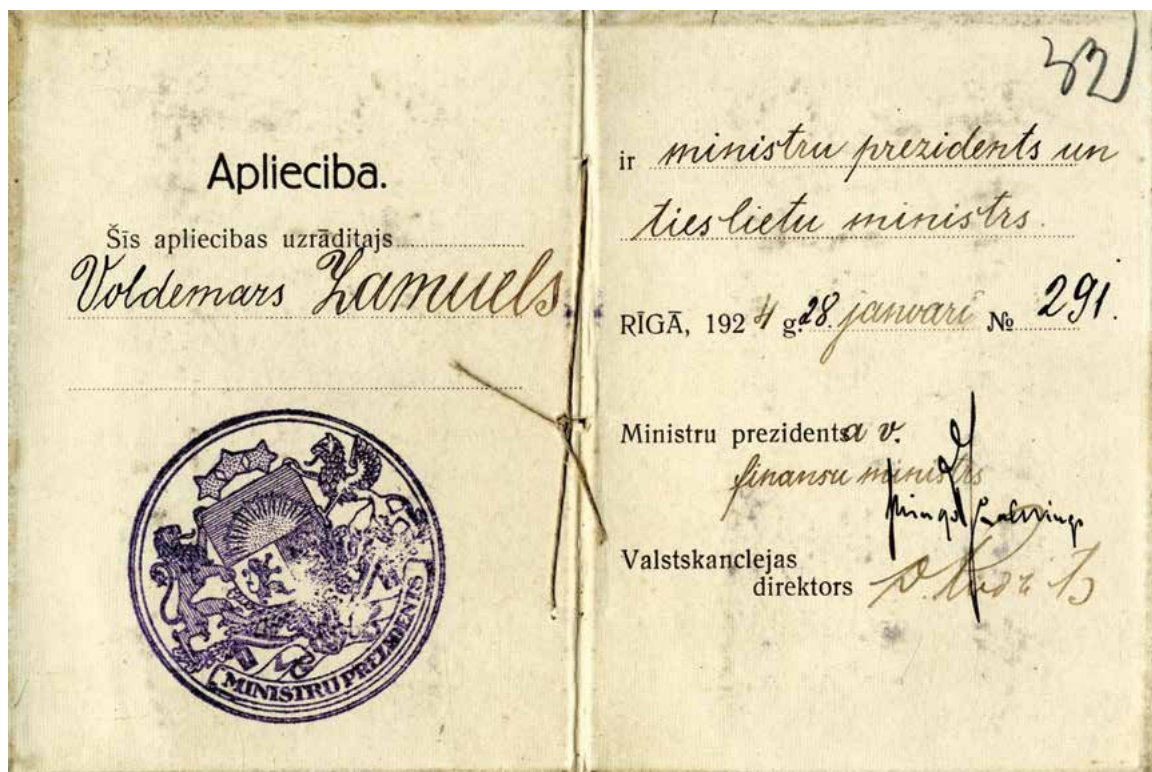 Apliecība.
Šīs apliecibas uzrāditajs
Voldemars Zamuels
MINISTRU PREZIDENTS
32)
ir ministru prezidents un
tieslietu ministrs.
RĪGĀ, 1924 g. 28. janvarī № 291.
Ministru prezidenta v.
finansu ministrs
Valstskanclejas
direktors